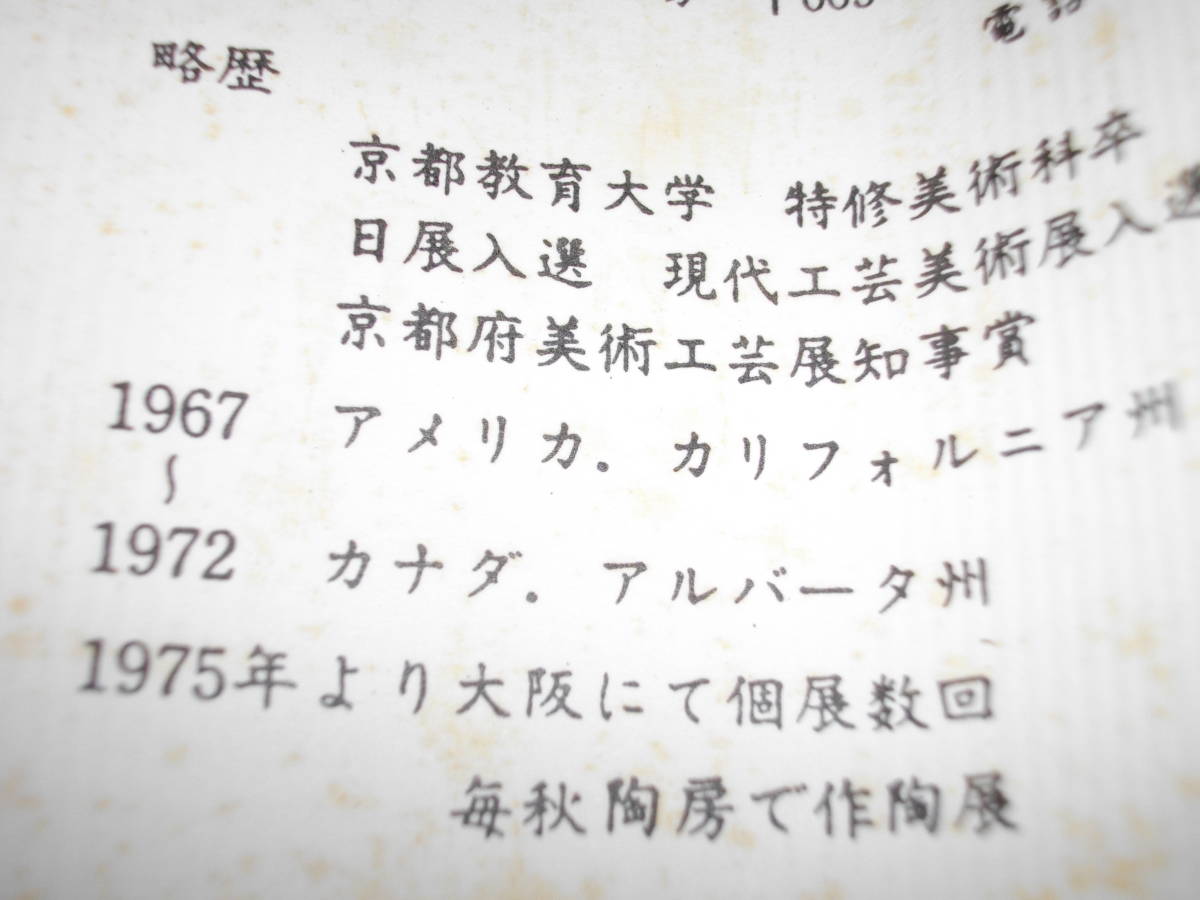 〒603
電話
略歴
京都教育大学 特修美術科卒
日展入選 現代工芸美術展入選
京都府美術工芸展知事賞
1967 アメリカ．カリフォルニア州
〜
1972 カナダ．アルバータ州
1975年より大阪にて個展数回
毎秋陶房で作陶展